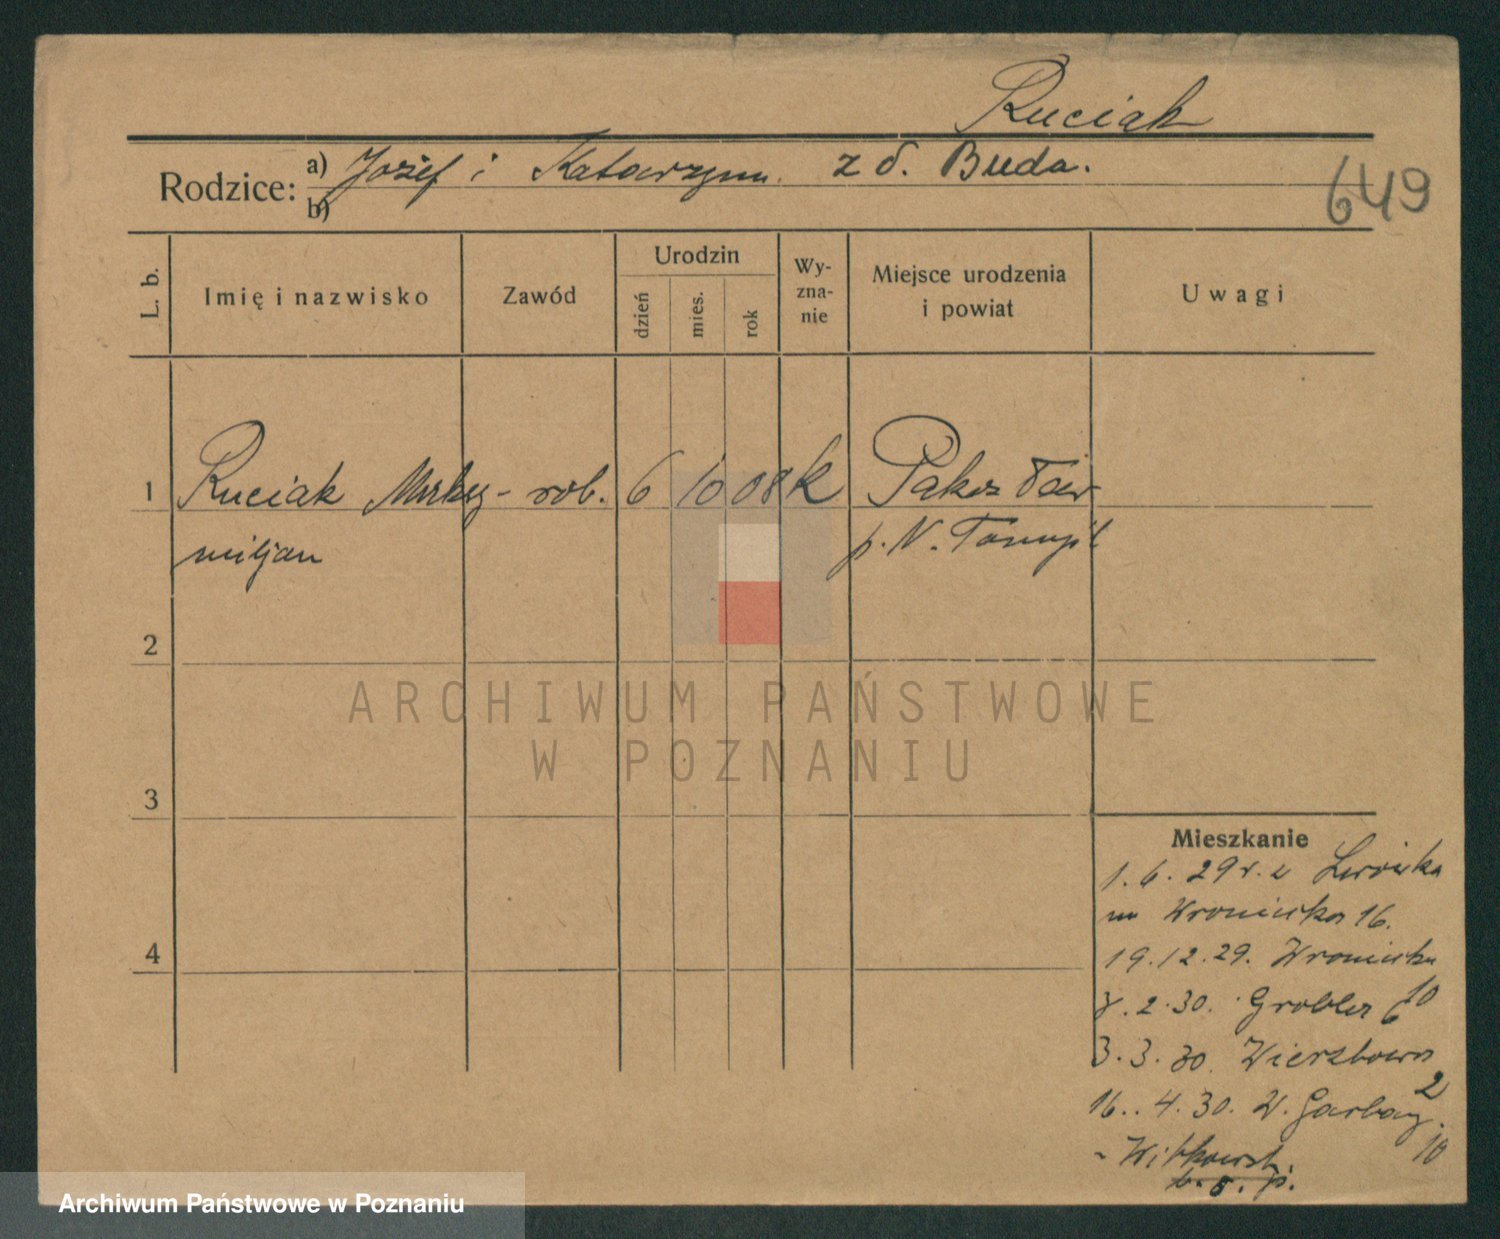 Ruciak
Rodzice: a) Józef i Katarzyna z d. Buda.
b)
649
L. b.
Imię i nazwisko
Zawód
Urodzin
dzień
mies.
rok
Wy-
zna-
nie
Miejsce urodzenia
i powiat
Uwagi
1 Ruciak Maksy- rob. 6 10 08 k Pakosław
miljan p. N. Tomyśl
2
3
4
ARCHIWUM PAŃSTWOWE
W POZNANIU
Mieszkanie
1. 6. 29 r. z Lwówka
na Wroniecka 16.
19.12.29. Wroniecka
10
2.30. Grobla 6
3.3.30. Wierzbowa
2
16.. 4.30. W. Garbary.
10
- Witkowsk.
Archiwum Państwowe w Poznaniu